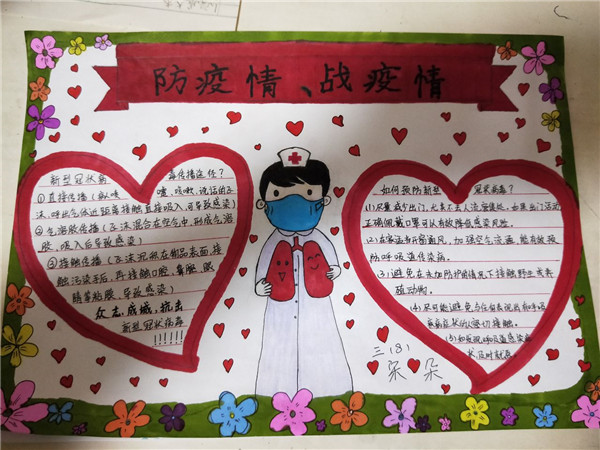 防疫情、战疫情
新型冠状病毒传播途径?
①直接传播(飞喷嚏、咳嗽、说话的飞
沫,呼出气体近距离接触直接吸入,可导致感染)
②气溶胶传播(飞沫混合在空气中,形成气溶
胶,吸入后导致感染)
③接触传播(飞沫沉积在物品表面,接
触污染手后,再接触口腔、鼻腔、眼
睛等粘膜、导致感染)
众志成城,抗击
新型冠状病毒
!!!!!!
如何预防新型冠状病毒?
(1)尽量减少出门,尤其不去人流密集处,如果出门活动
正确佩戴口罩可以有效降低感染风险。
(2)在家适当开窗通风,加强空气流通,能有效预
防呼吸道传染病。
(3)避免在未加防护的情况下接触野生或养
殖动物。
(4)尽可能避免与任何表现出有呼吸
症状的密切接触。
(5)如发现呼吸道感染
状及时就医
三(8)
朵朵